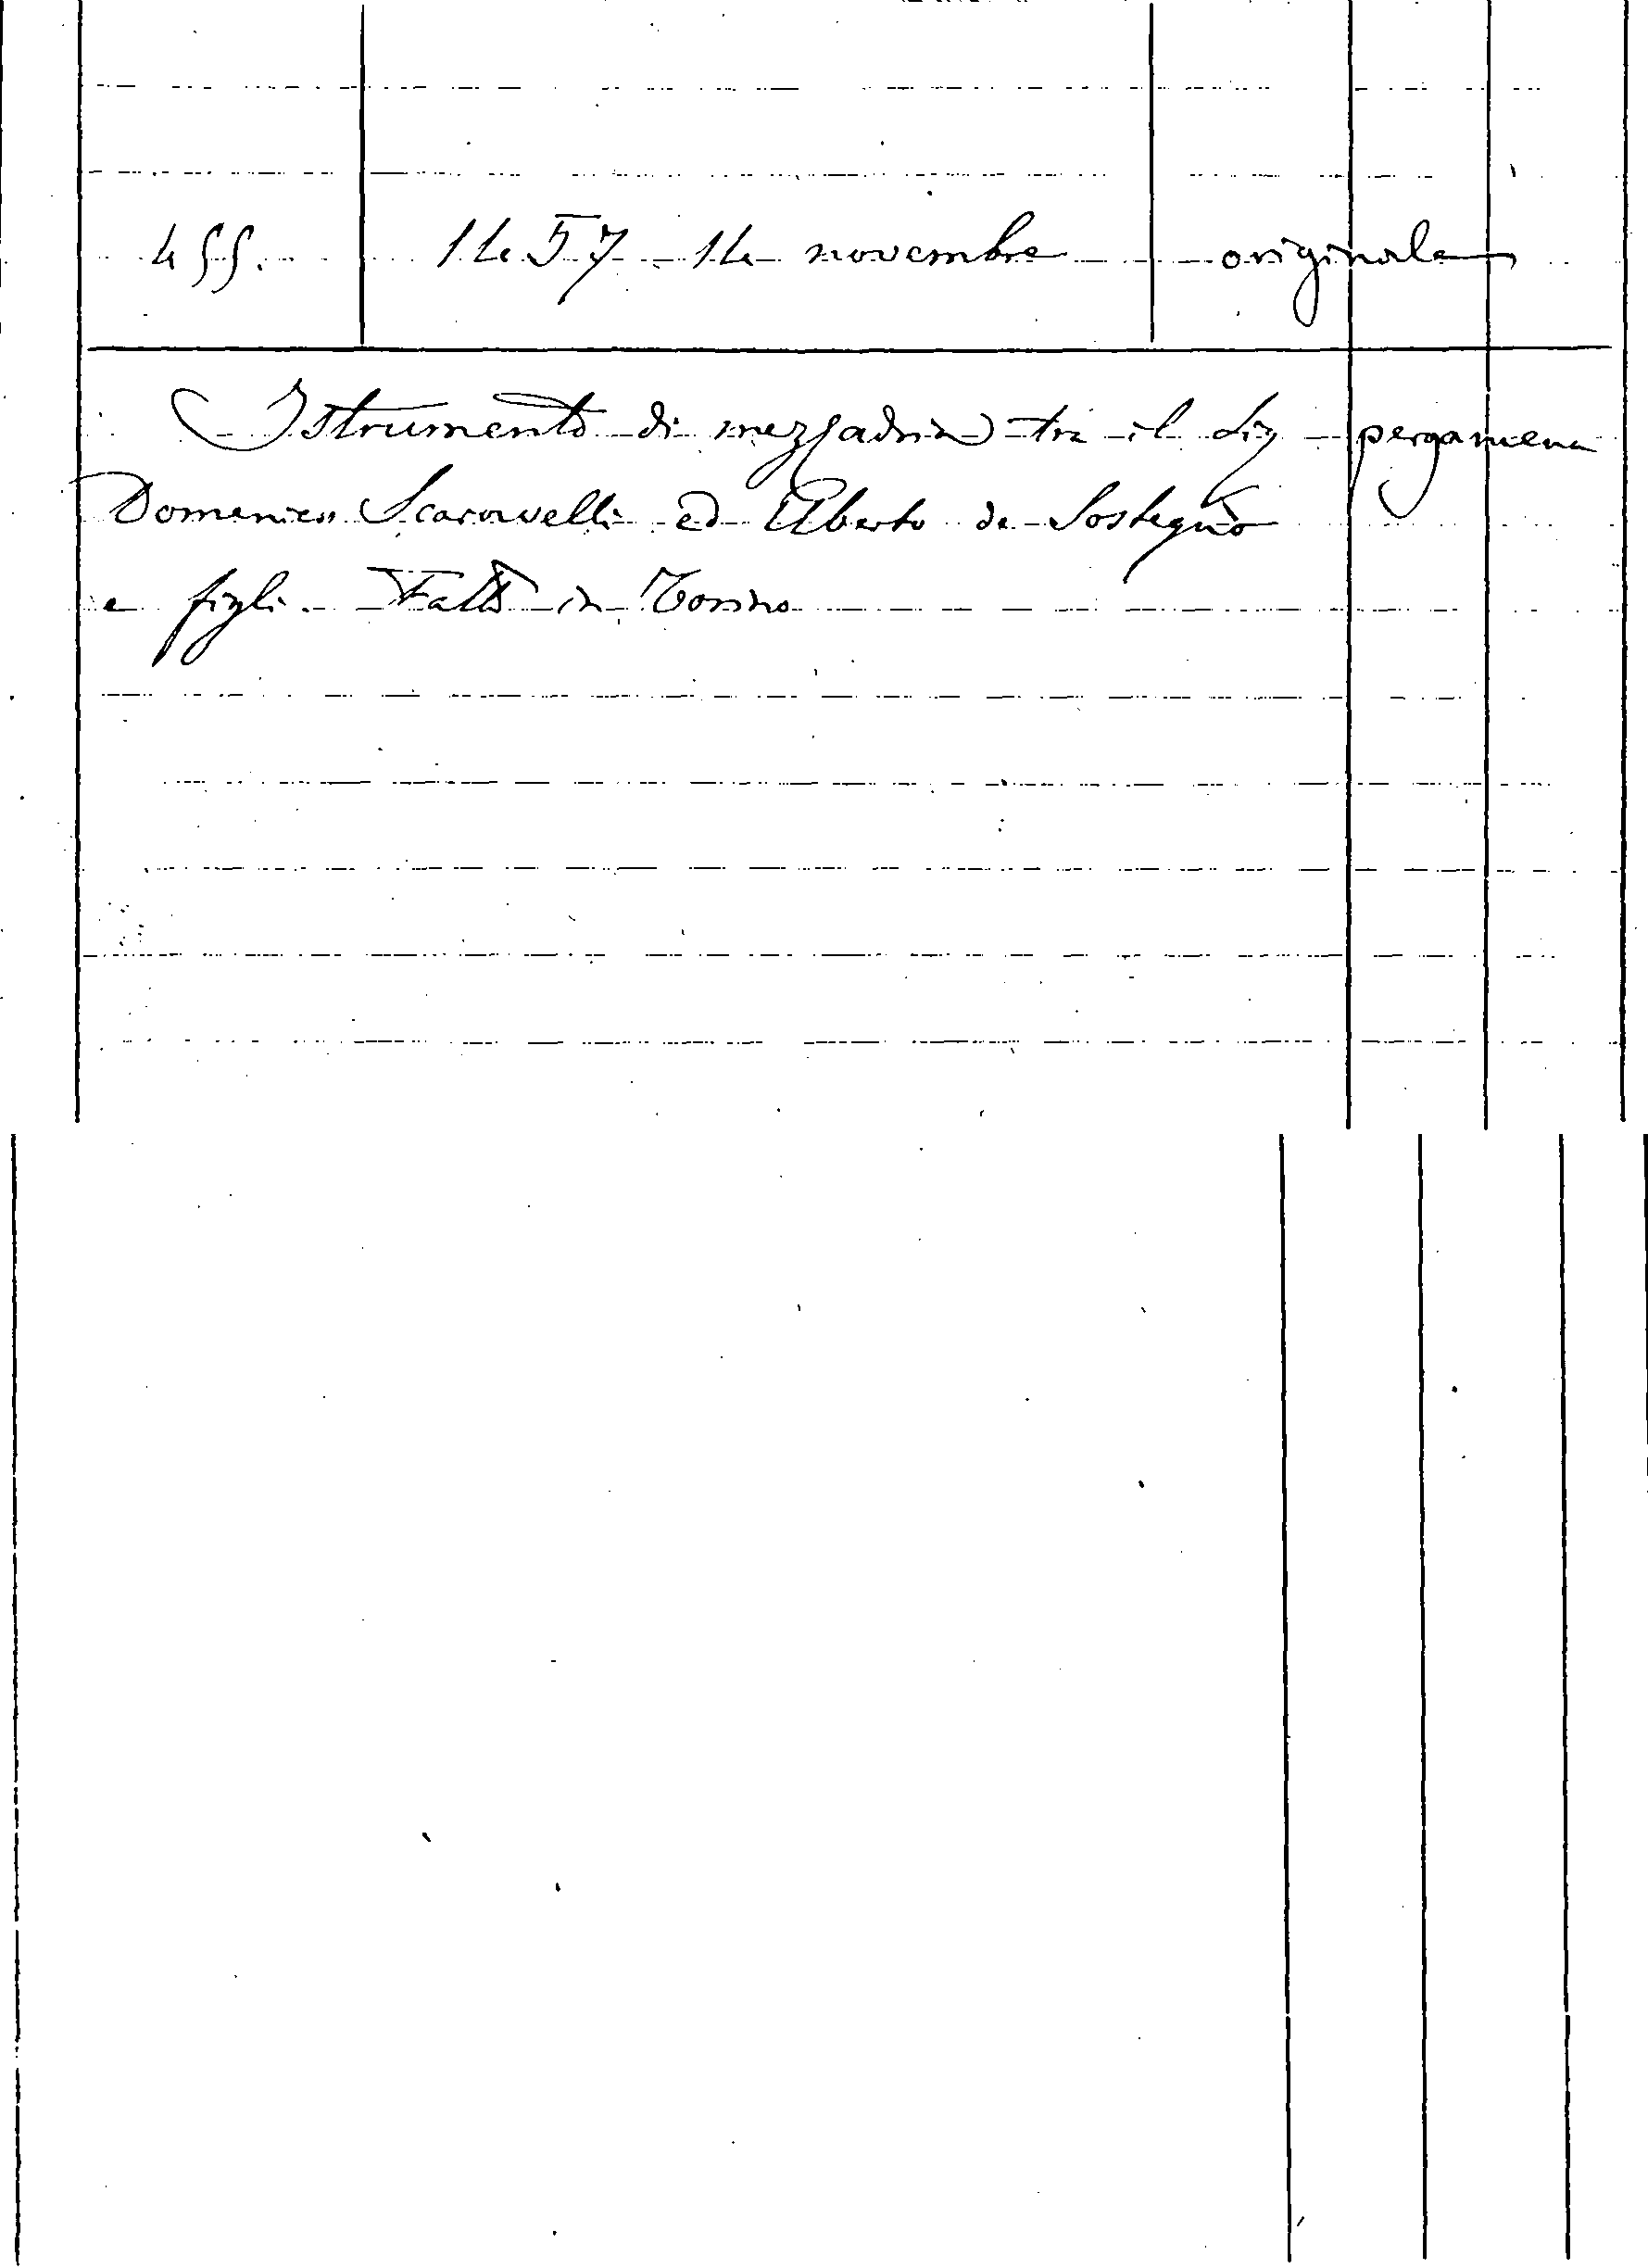 455. 1457 14 novembre originale
Istrumento di mezzadria tra il Sig pergamena
Domenico Scaravelli ed Uberto de Sostegno
e figli. Fatto in Torino